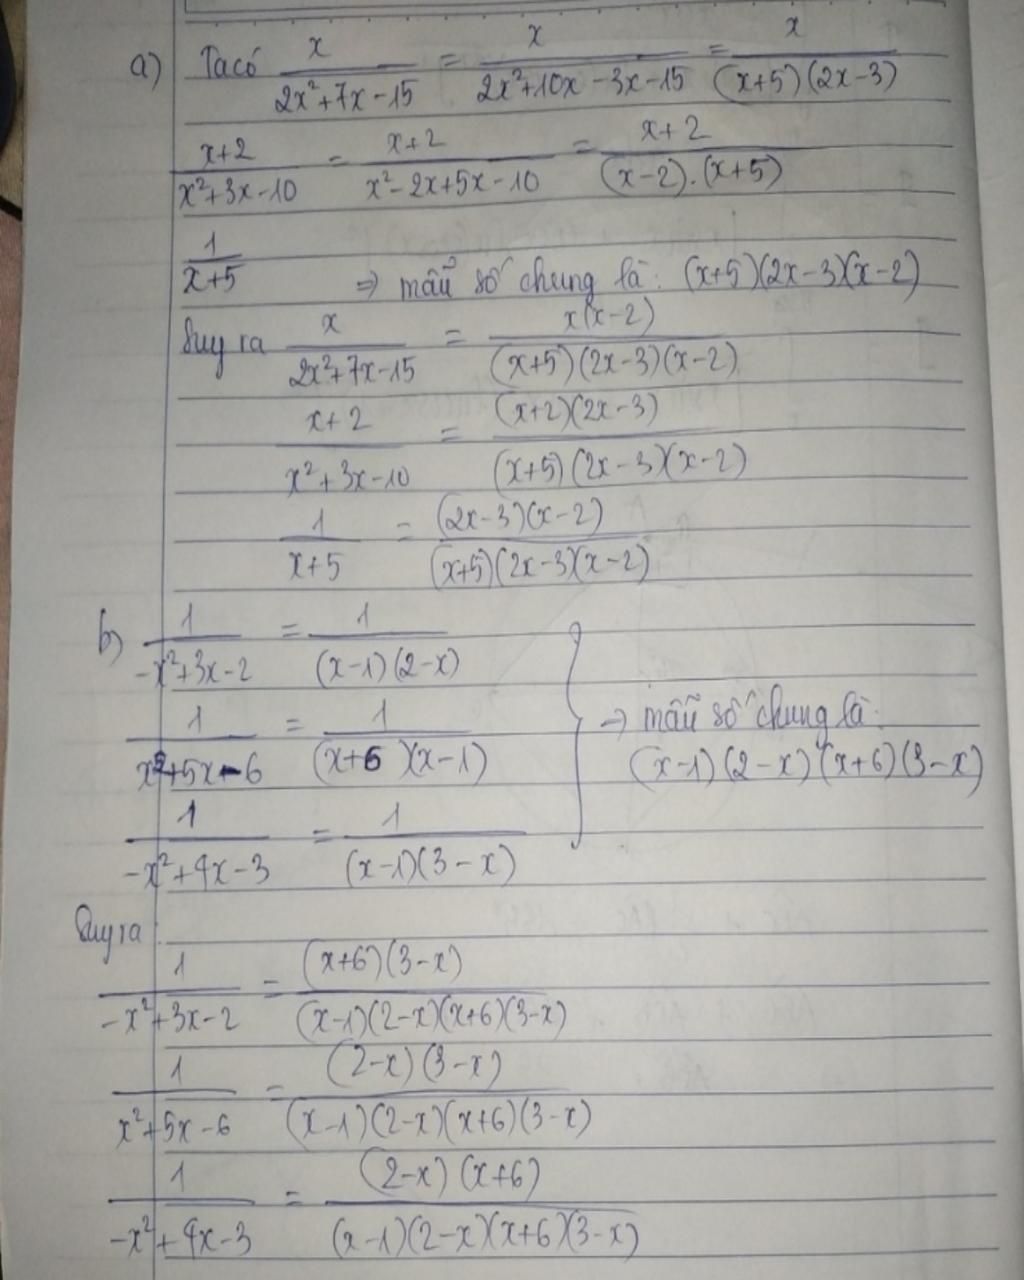 a) Ta có x/(2x²+7x-15) = x/(2x²+10x-3x-15) = x/((x+5)(2x-3))
(x+2)/(x²+3x-10) = (x+2)/(x²-2x+5x-10) = (x+2)/((x-2).(x+5))
1/(x+5) ⇒ mẫu số chung là: (x+5)(2x-3)(x-2)
Suy ra x/(2x²+7x-15) = x(x-2)/((x+5)(2x-3)(x-2))
(x+2)/(x²+3x-10) = (x+2)(2x-3)/((x+5)(2x-3)(x-2))
1/(x+5) = (2x-3)(x-2)/((x+5)(2x-3)(x-2))
b) 1/(-x²+3x-2) = 1/((x-1)(2-x))
1/(x²+5x-6) = 1/((x+6)(x-1))
1/(-x²+4x-3) = 1/((x-1)(3-x))
→ mẫu số chung là:
(x-1)(2-x)(x+6)(3-x)
Suy ra
1/(-x²+3x-2) = (x+6)(3-x)/((x-1)(2-x)(x+6)(3-x))
1/(x²+5x-6) = (2-x)(3-x)/((x-1)(2-x)(x+6)(3-x))
1/(-x²+4x-3) = (2-x)(x+6)/((x-1)(2-x)(x+6)(3-x))